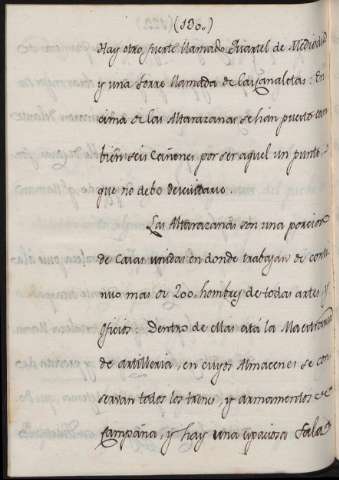 (130.)
Hay otro fuerte llamado Quartel de Mediodia
y una Torre llamada de las Canaletas: En
cima de las Attarazanas se hàn puesto tam
bien seis Cañones por ser aquel un punto
que no debe descuidarse.
Las Attarazanas son una porcion
de Casas unidas en donde trabajan de conti
nuo mas de 200. hombres de todas artes y
Oficios: Dentro de ellas atá la Maestranza
de artilleria, en cuyos Almacenes se con
servan todos los trenes, y armamentos de
Campaña, y hay una espaciosa Sala